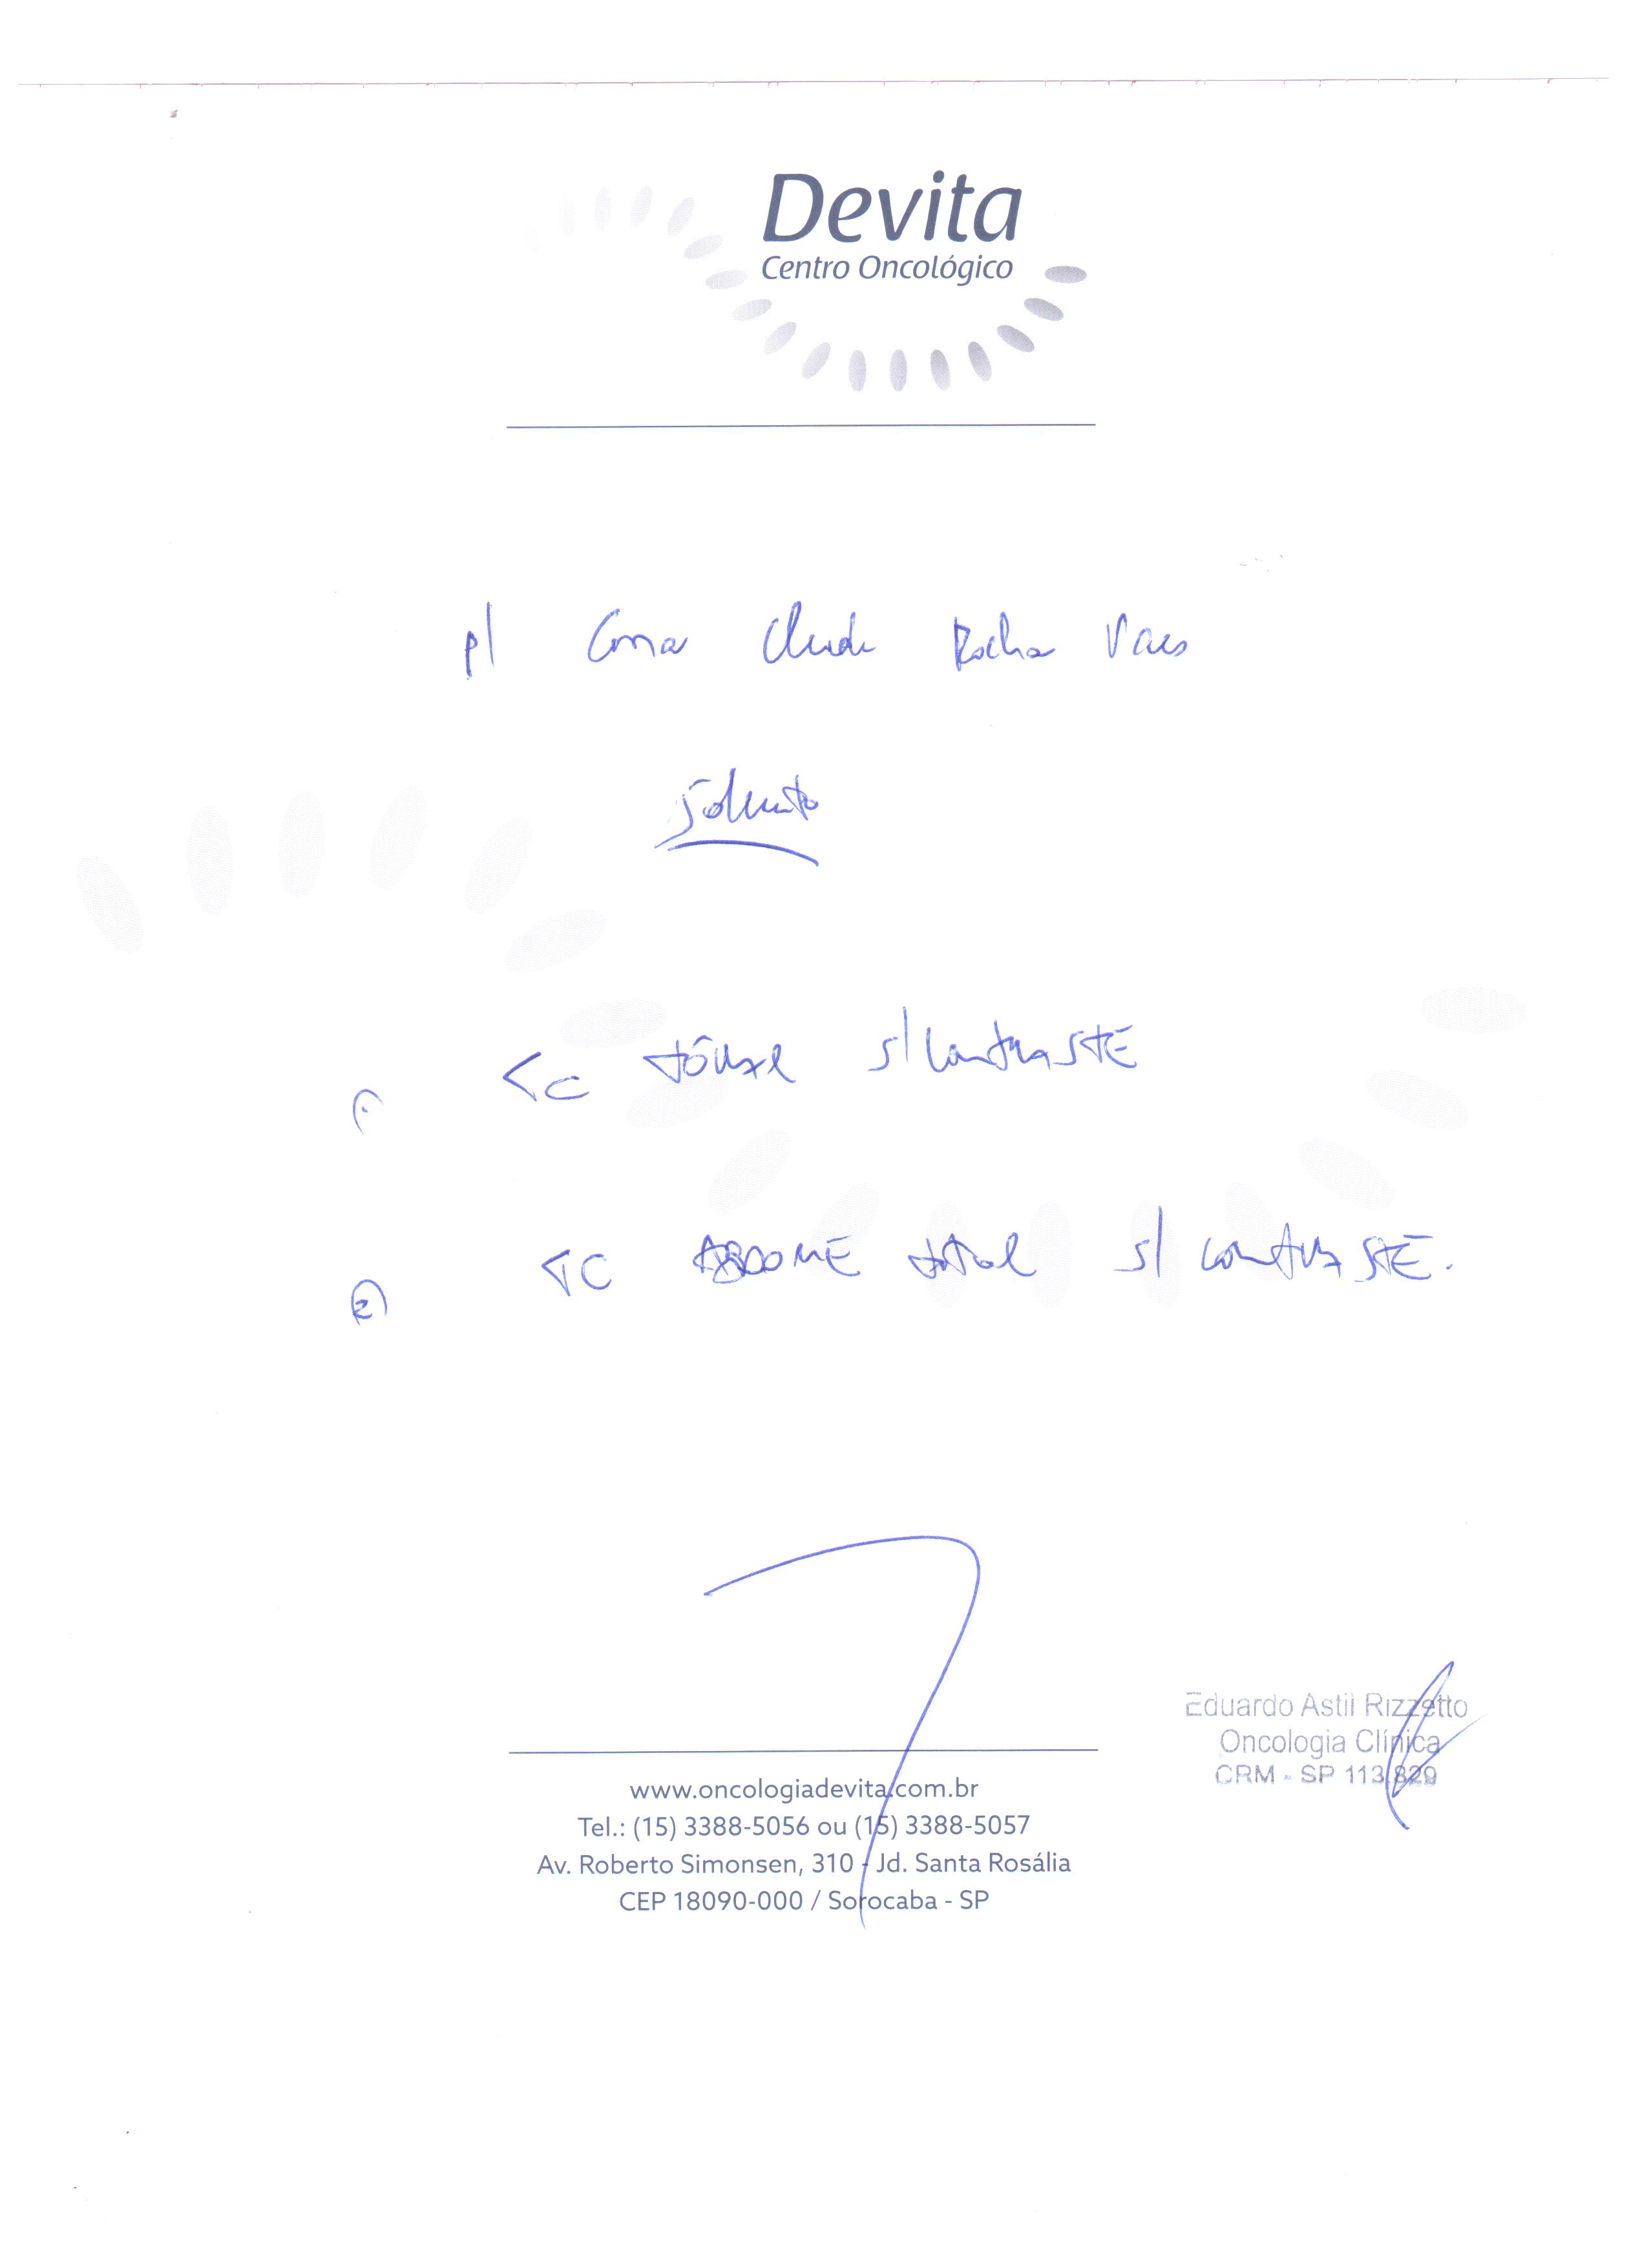 Devita
Centro Oncológico
p/ Rocha
Solicito
1) TC tórax s/ contraste
2) TC ABDOME total s/ contraste.
Eduardo Astil Rizzetto
Oncologia Clínica
CRM - SP 113.829
www.oncologiadevita.com.br
Tel.: (15) 3388-5056 ou (15) 3388-5057
Av. Roberto Simonsen, 310 - Jd. Santa Rosália
CEP 18090-000 / Sorocaba - SP